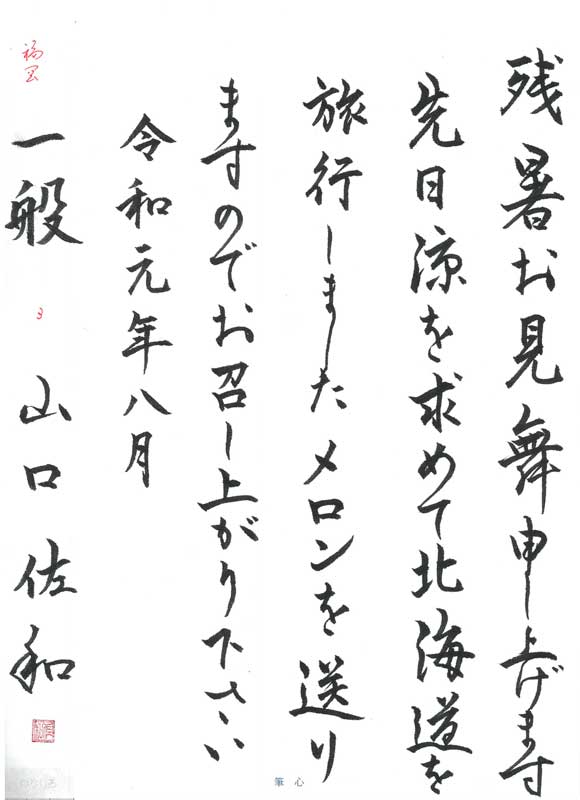 残暑お見舞申し上げます
先日涼を求めて北海道を
旅行しましたメロンを送り
ますのでお召し上がり下さい
令和元年八月
福岡
一般 3 山口佐和
筆心